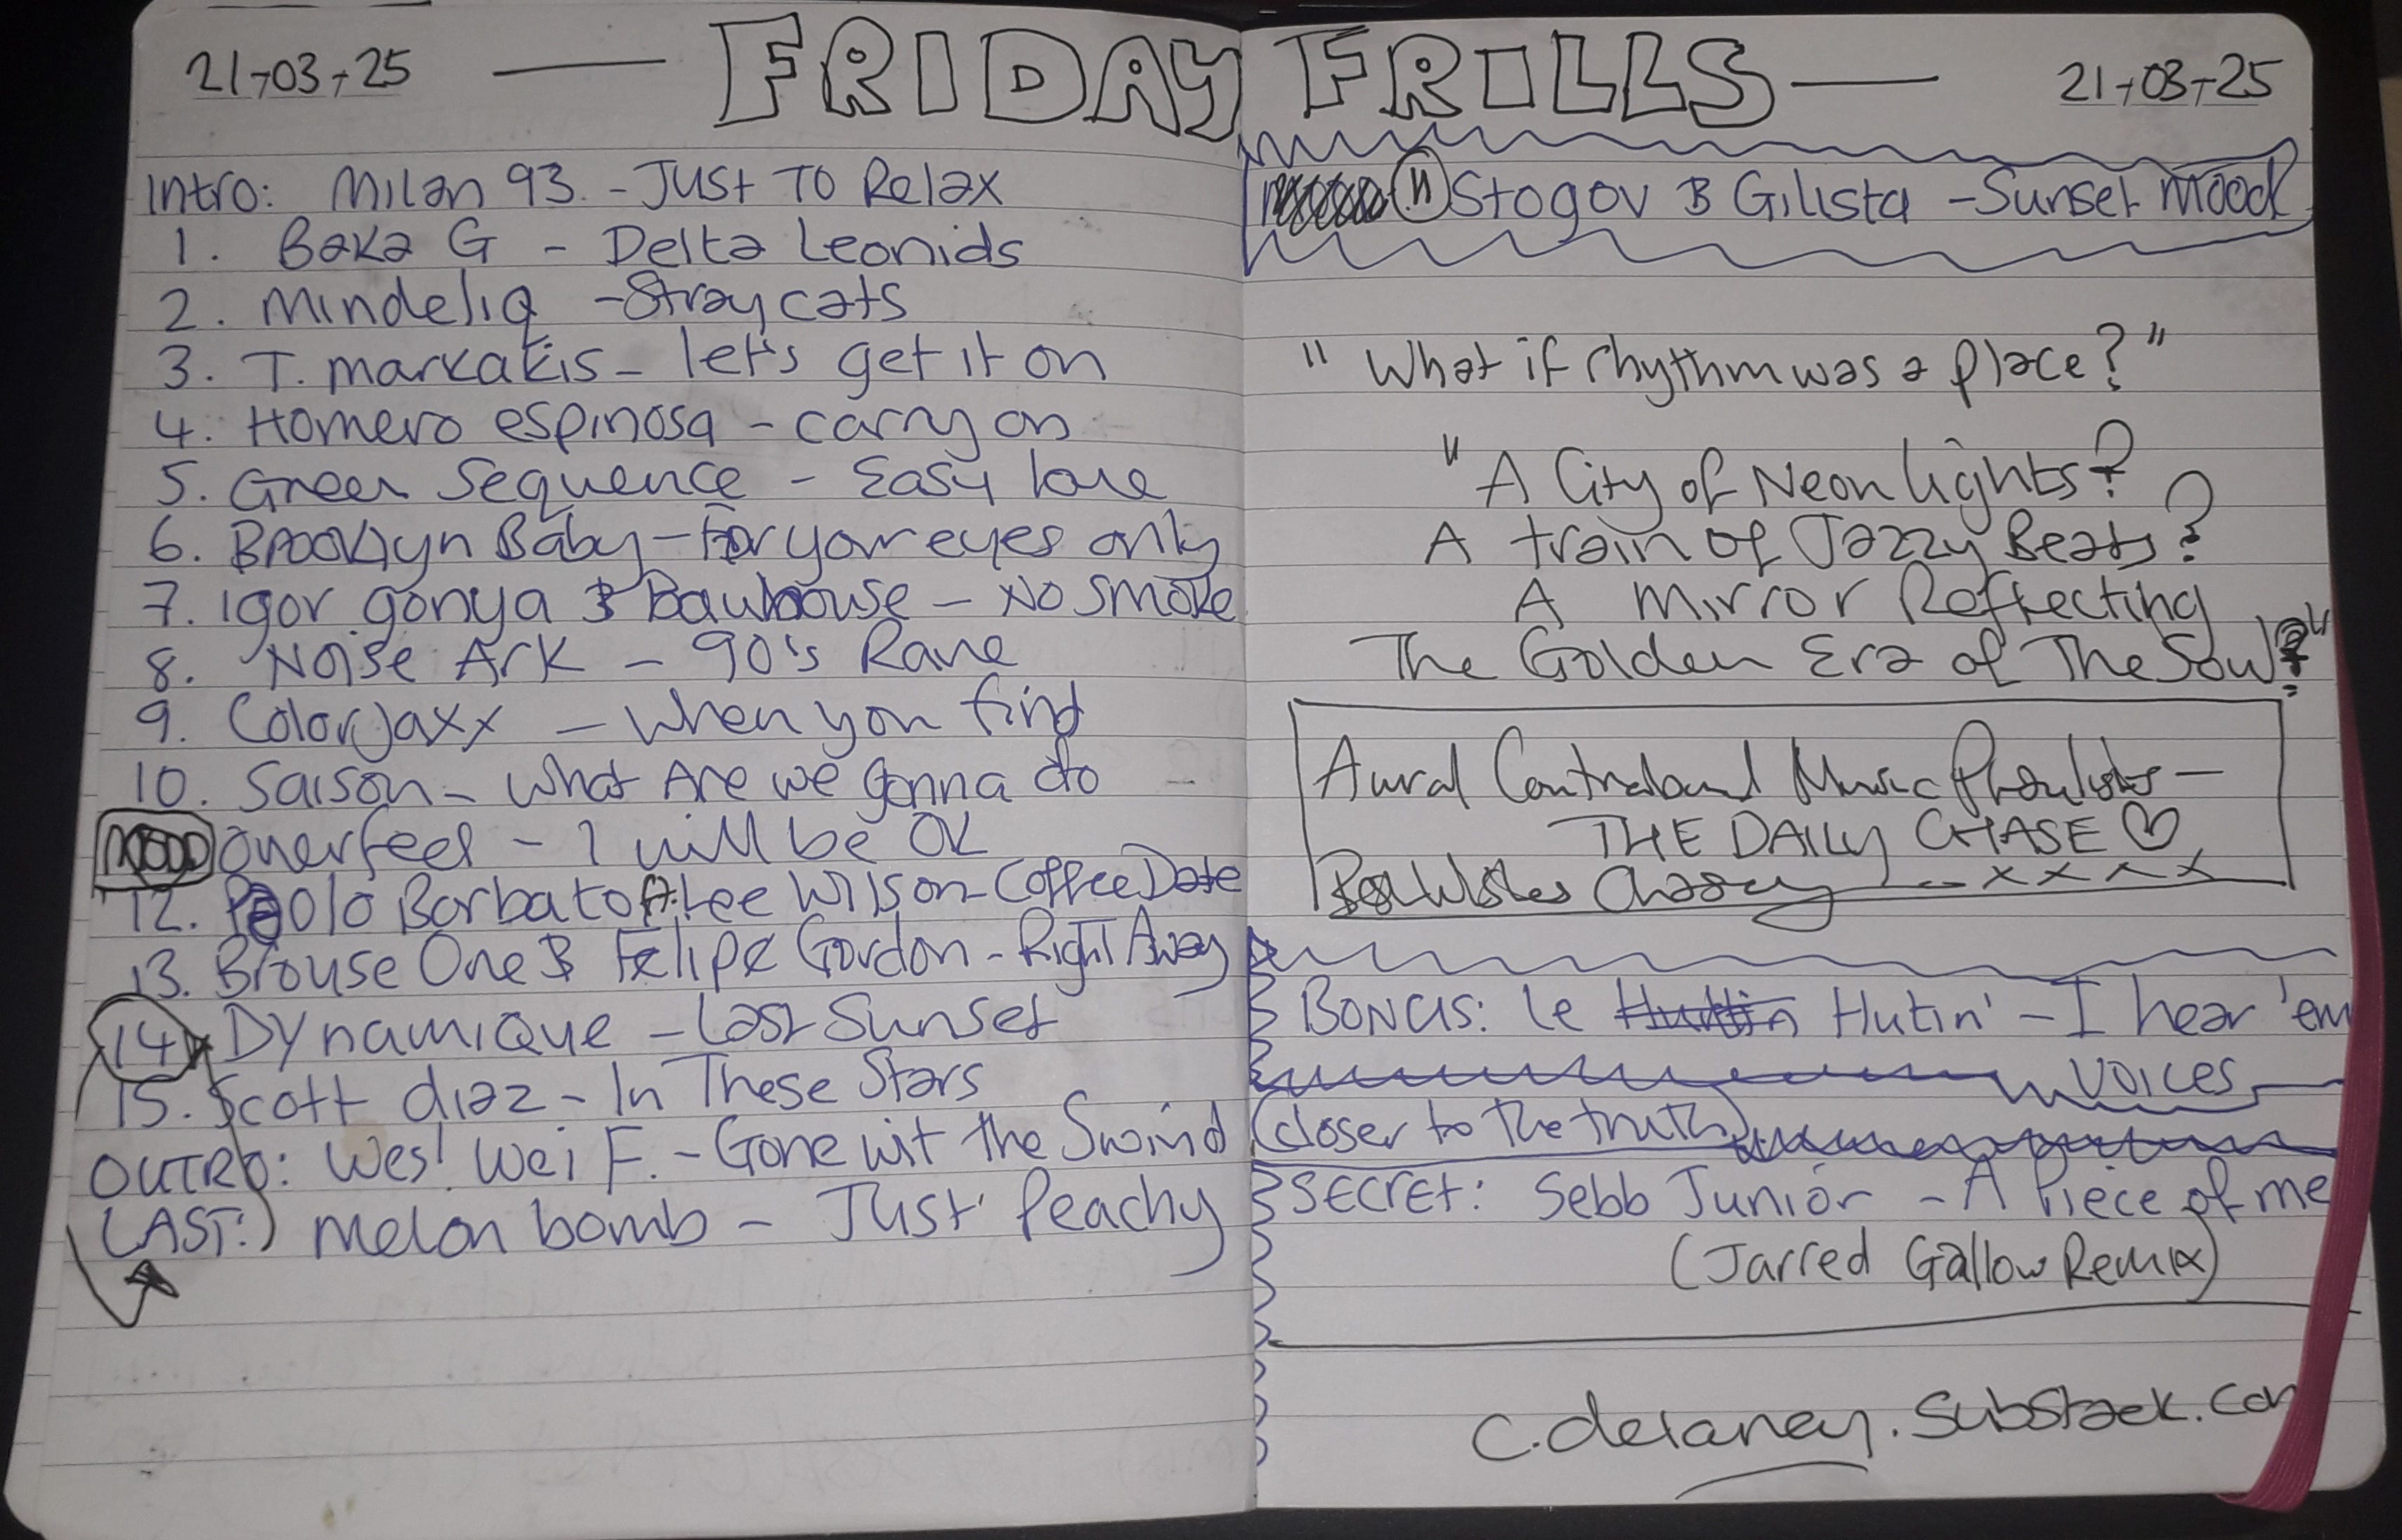 21-03-25 — FRIDAY FRILLS — 21-03-25
Intro: Milan 93. - Just To Relax
1. Baka G - Delta Leonids
2. Mindeliq - Stray cats
3. T. markakis - let's get it on
4. Homero espinosa - carry on
5. Green Sequence - Easy love
6. Brooklyn Baby - For your eyes only
7. Igor gonya & Bauhouse - No smoke
8. Noise Ark - 90's Rave
9. Colorjaxx - When you find
10. Saison - What Are we gonna do
MOOD Overfeel - I will be OK
12. Paolo Barbato ft. Lee Wilson - Coffee Date
13. Brouse One & Felipe Gordon - Right Away
14. Dynamique - Last Sunset
15. Scott diaz - In These Stars
OUTRO: Wes! Wei F. - Gone wit the Swind
LAST:) melon bomb - Just Peachy
11 Stogov & Gilista - Sunset Mood
"What if rhythm was a place?"
"A City of Neon lights?
A train of Jazzy Beats?
A Mirror Reflecting
The Golden Era of The Soul?"
Aural Contraband Music -
THE DAILY CHASE ♡
Best Wishes Chasey - x x x x
BONUS: le Hutin' - I hear 'em
VOICES
(closer to the truth)
SECRET: Sebb Junior - A Piece of me
(Jarred Gallow Remix)
c.delaney.substack.com